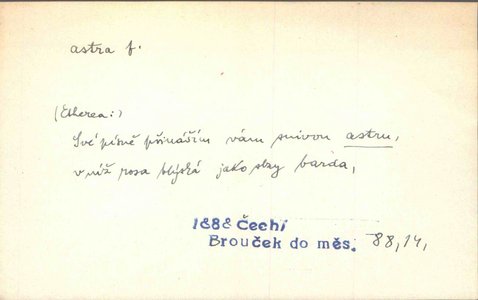 astra f.
(Etherea:)
Své písně přináším vám snivou astru,
v níž rosa blýská jako slzy barda,
1888 Čech/
Brouček do měs. 88,14,